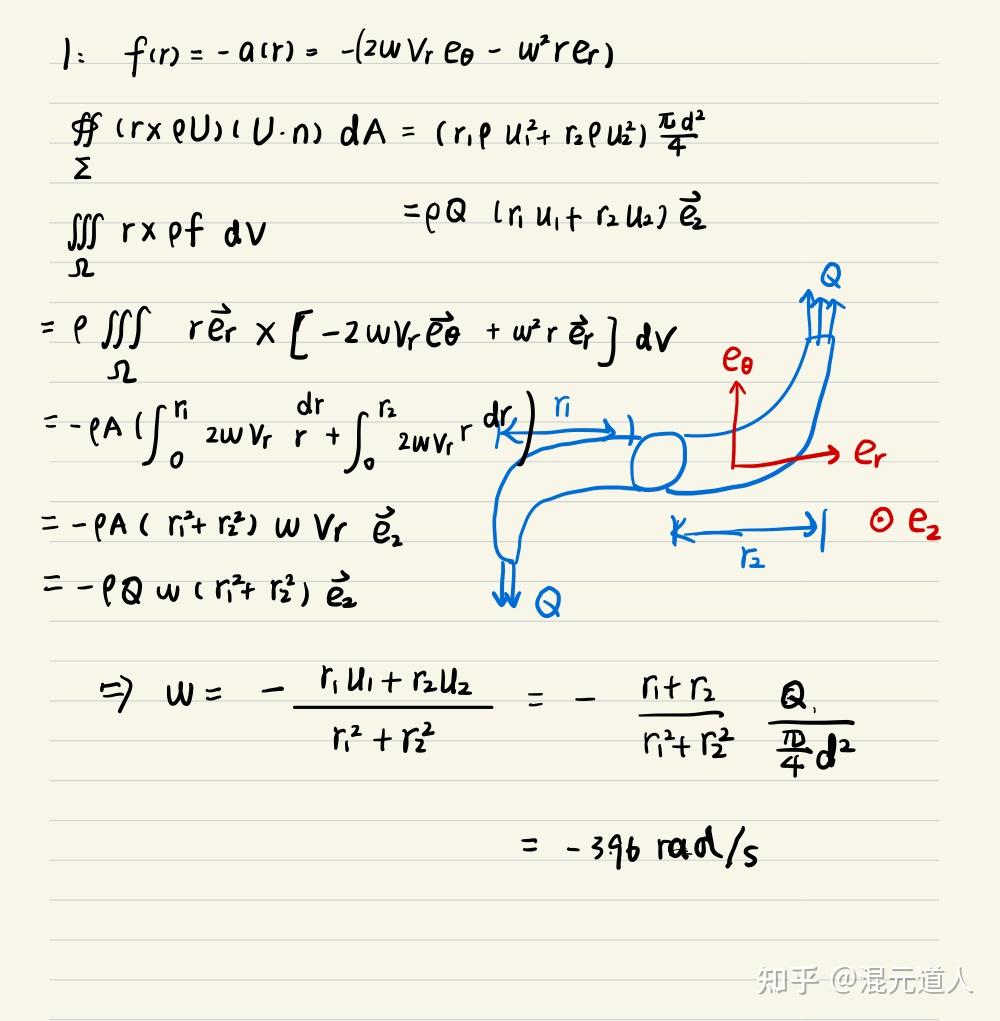 1: f(r) = -a(r) = -(2w Vr eθ - w²r er)
∯Σ (r×ρU)(U·n) dA = (r₁ρ u₁² + r₂ρ u₂²) πd²/4
= ρQ (r₁u₁ + r₂u₂) e⃗₂
∭Ω r×ρf dV
= ρ ∭Ω r e⃗r × [-2wVr e⃗θ + w²r e⃗r] dV
= -ρA (∫₀^r₁ 2wVr r dr + ∫₀^r₂ 2wVr r dr)
= -ρA (r₁² + r₂²) w Vr e⃗₂
= -ρQ w (r₁² + r₂²) e⃗₂
Q
eθ
r₁
er
e₂
r₂
Q
⇒ w = - (r₁u₁ + r₂u₂)/(r₁² + r₂²) = - (r₁ + r₂)/(r₁² + r₂²) Q/(π/4 d²)
= -396 rad/s
知乎 @混元道人